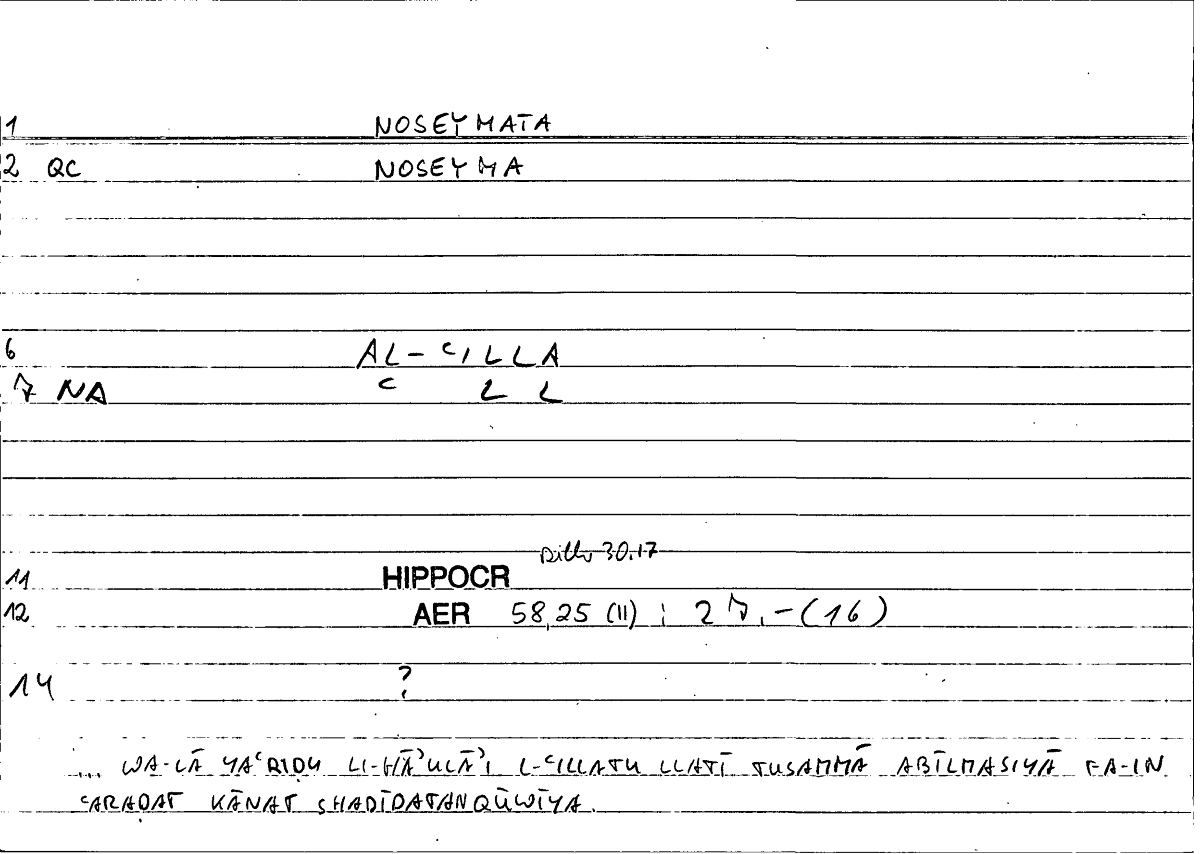 1 NOSEYMATA
2 QC NOSEYMA
6 AL-ʿILLA
7 NA ʿ L L
30.17
11 HIPPOCR
12 AER 58,25 (II) ; 27,-(16)
14 ?
... WA-LĀ YAʿRIḌU LI-HĀʾULĀʾI L-ʿILLATU LLATĪ TUSAMMĀ ABĪLMASIYĀ FA-IN
ʿARADAT KĀNAT SHADĪDATAN QŪWĪYA.